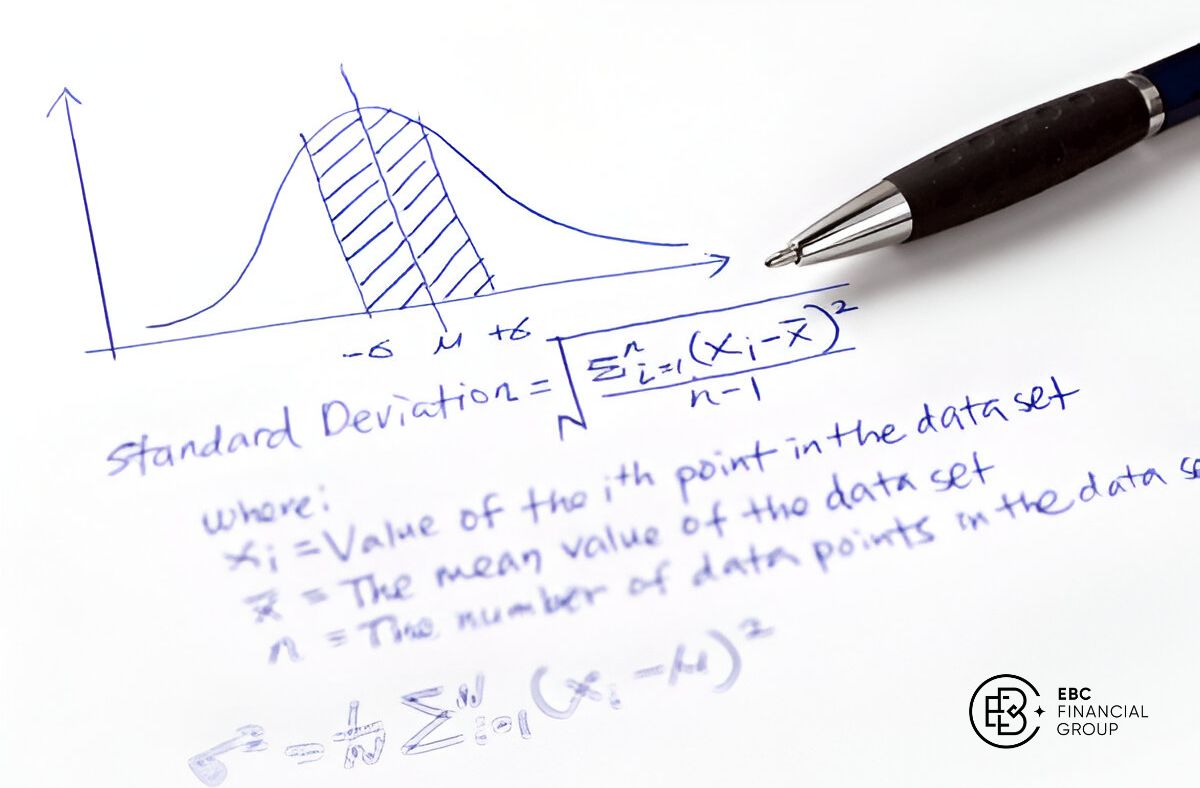 -σ μ +σ
Standard Deviation = √(Σⁿᵢ₌₁(xᵢ-x̄)²/n-1)
where:
xᵢ = Value of the iᵗʰ point in the data set
x̄ = The mean value of the data set
n = The number of data points in the data se
σ² = 1/N Σᴺᵢ₌₁(xᵢ-μ)²
EBC
FINANCIAL
GROUP